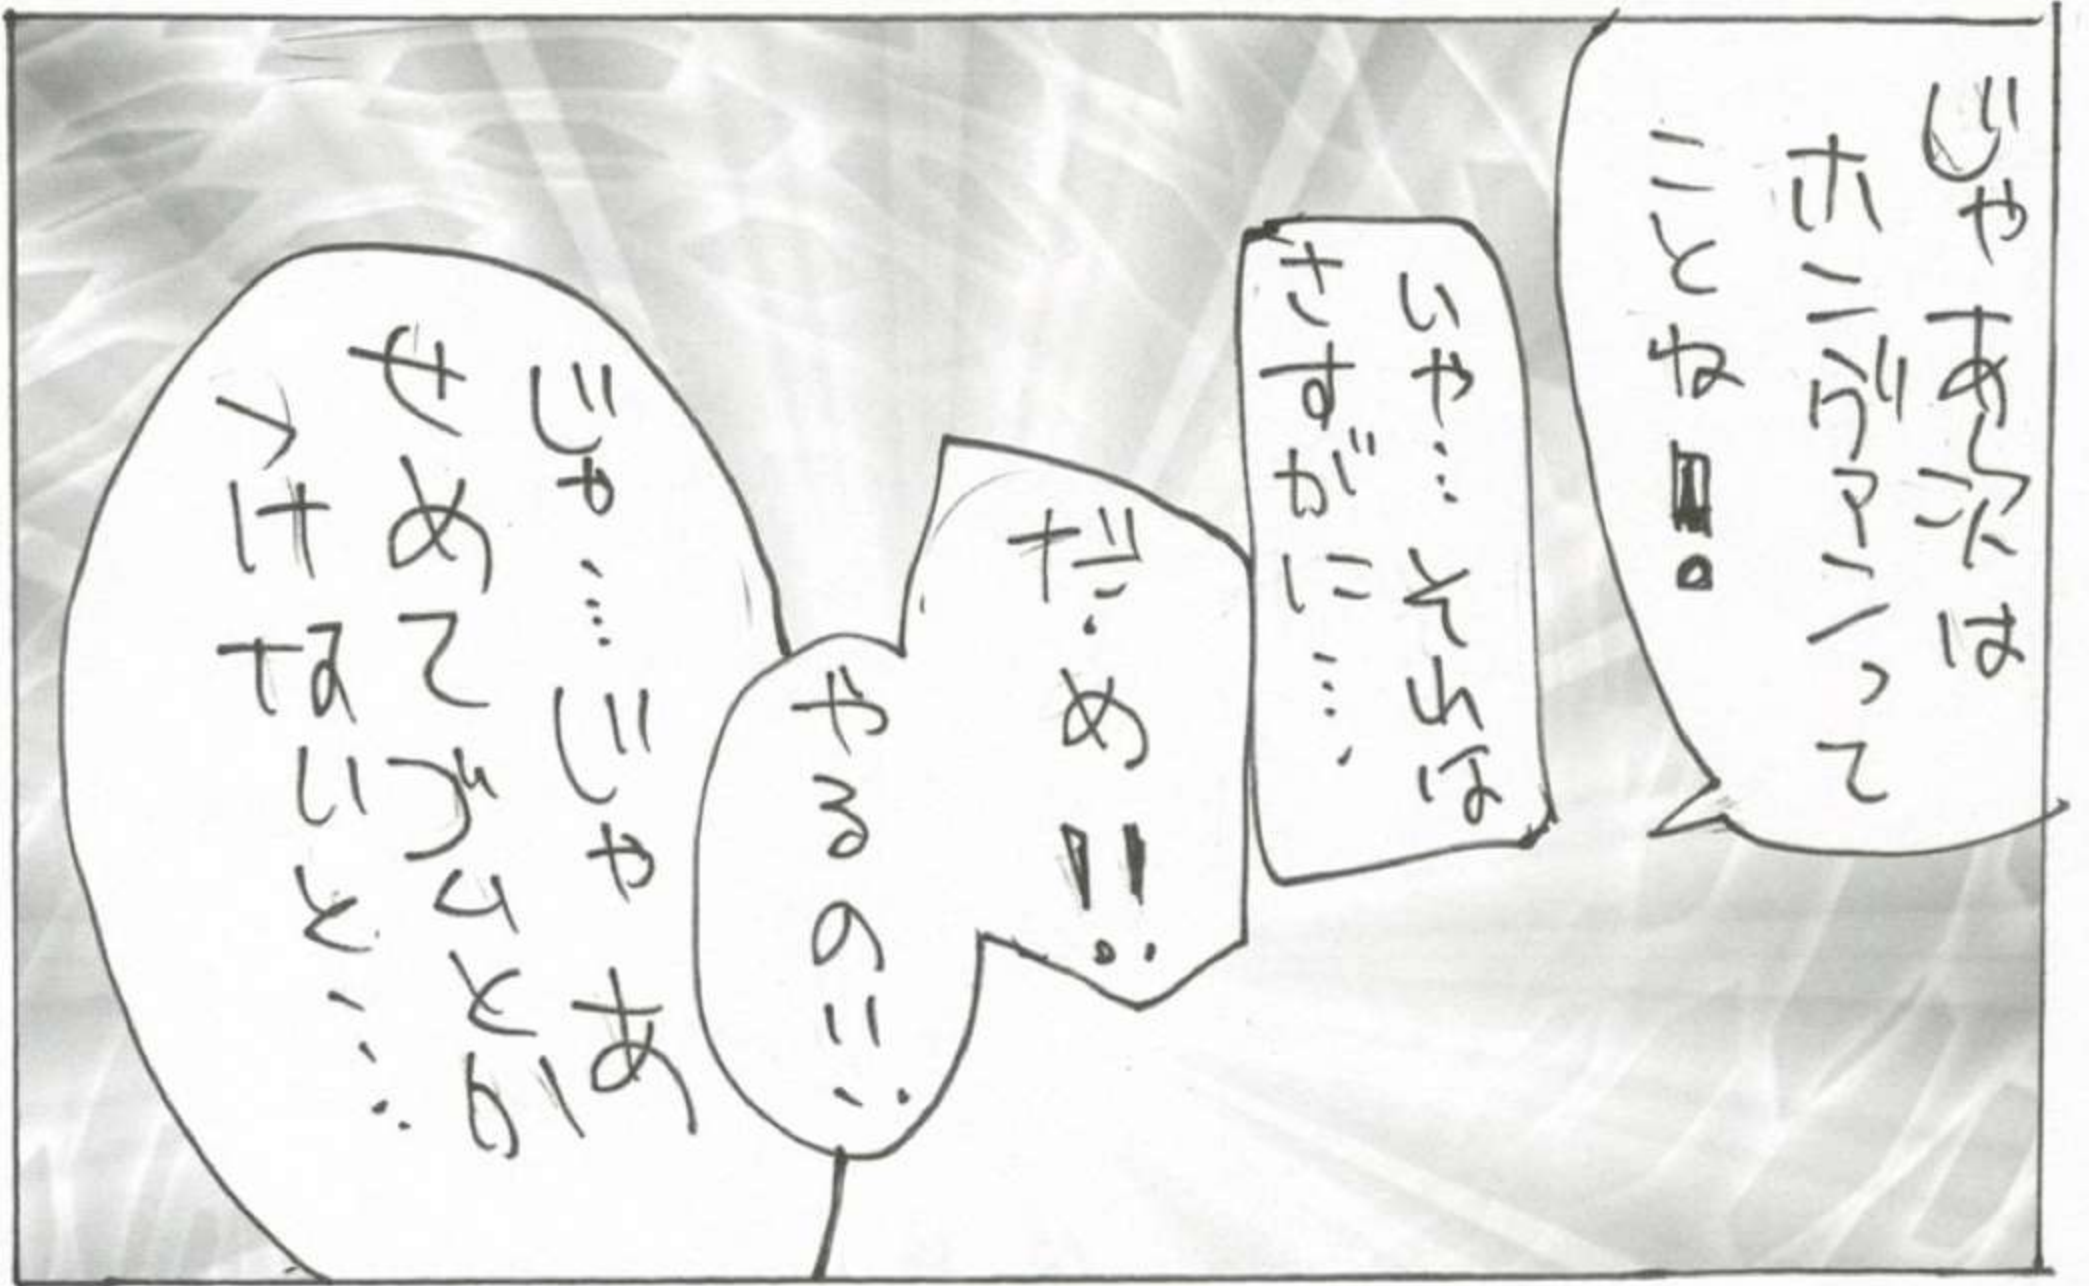 じゃあ次は
ホニヴァンって
ことね!
いや…それは
さすがに….
だ.め!!
やるの!!
じゃ…じゃあ
せめてゴムとか
つけないと…